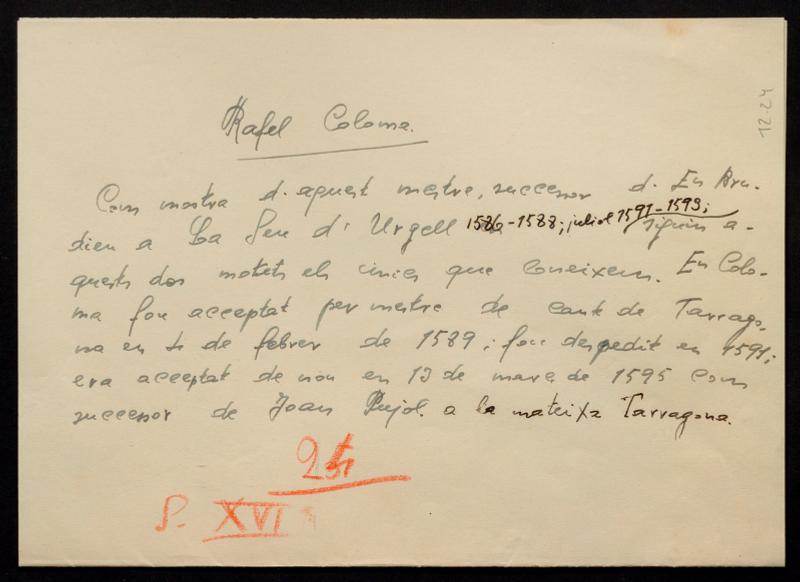 12.24
Rafel Coloma.
Com mostra d'aquest mestre, successor d'En Bru-
dieu a La Seu d'Urgell 1586-1588; juliol 1591-1593; siguin a-
quests dos motets els únics que coneixem. En Colo-
ma fou acceptat per mestre de cant de Tarrago-
na en de febrer de 1589; fou despedit en 1591;
era acceptat de nou en 13 de març de 1595 com
successor de Joan Pujol. a la mateixa Tarragona.
S. XVI